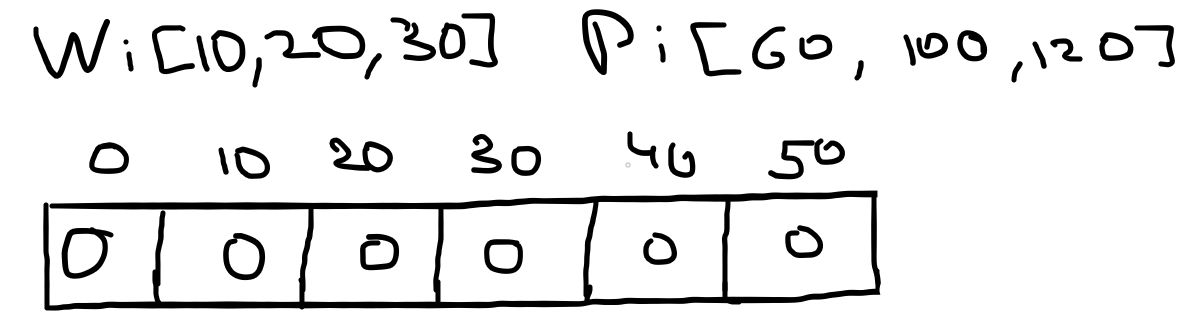 Wi[10,20,30] Pi[60, 100,120]
0 10 20 30 40 50
0 0 0 0 0 0